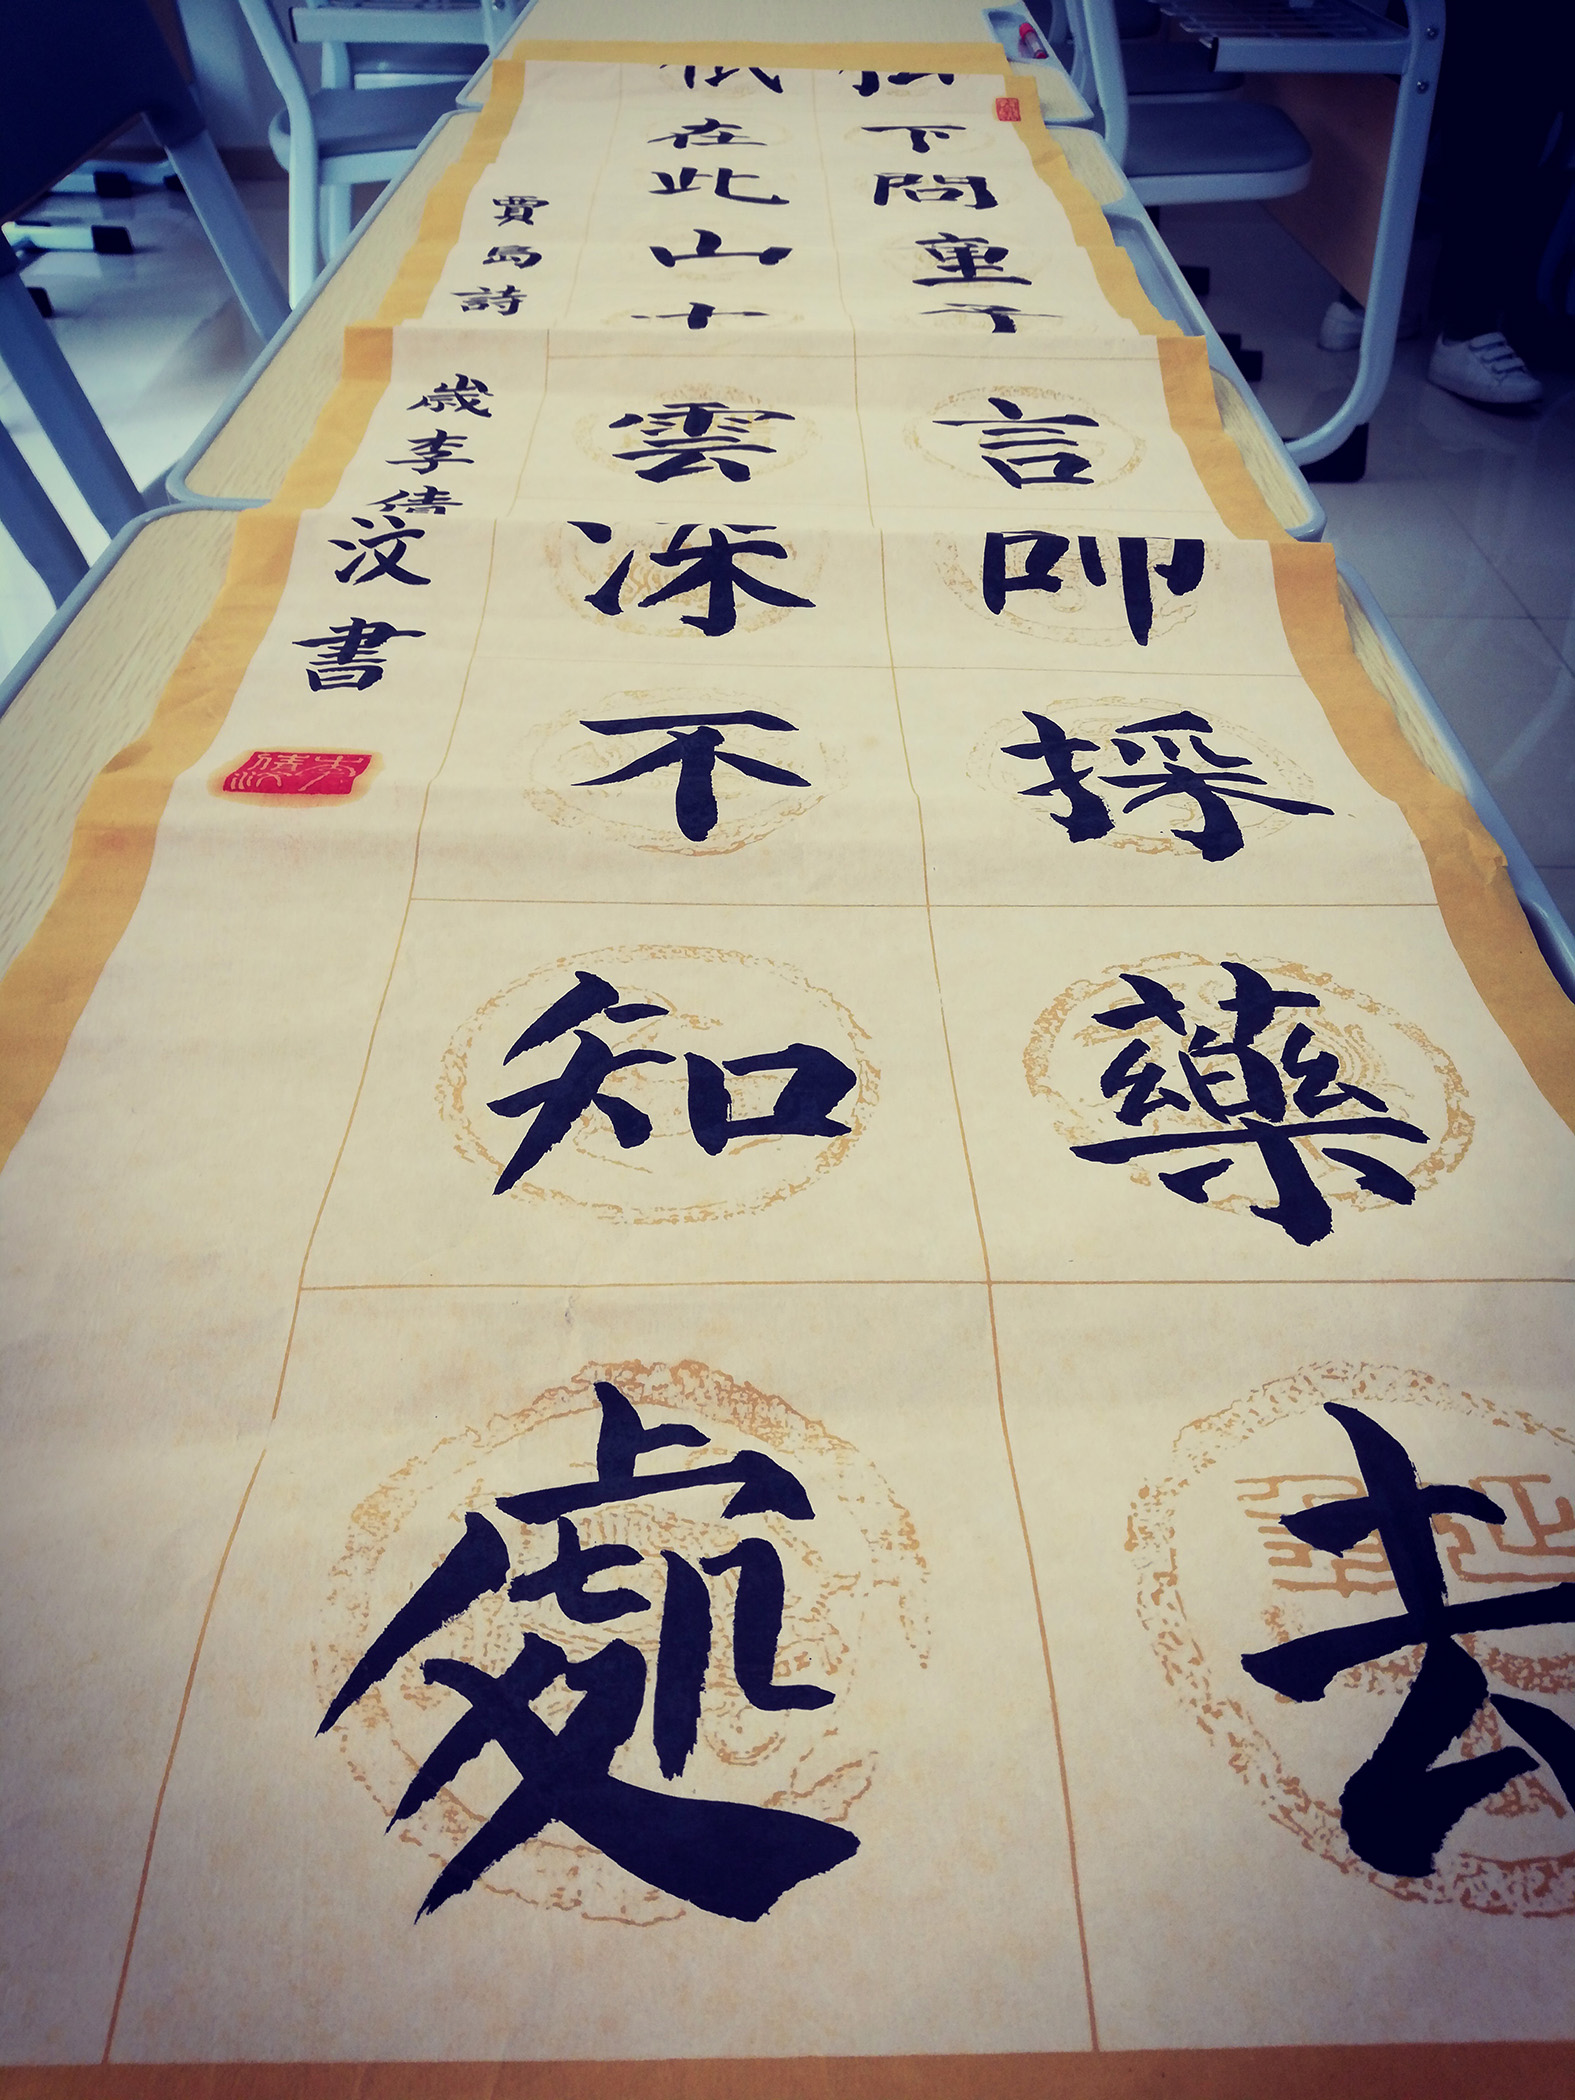 松下問童子言師採藥去
祇在此山中雲深不知處
賈島詩
歲李倩汶書